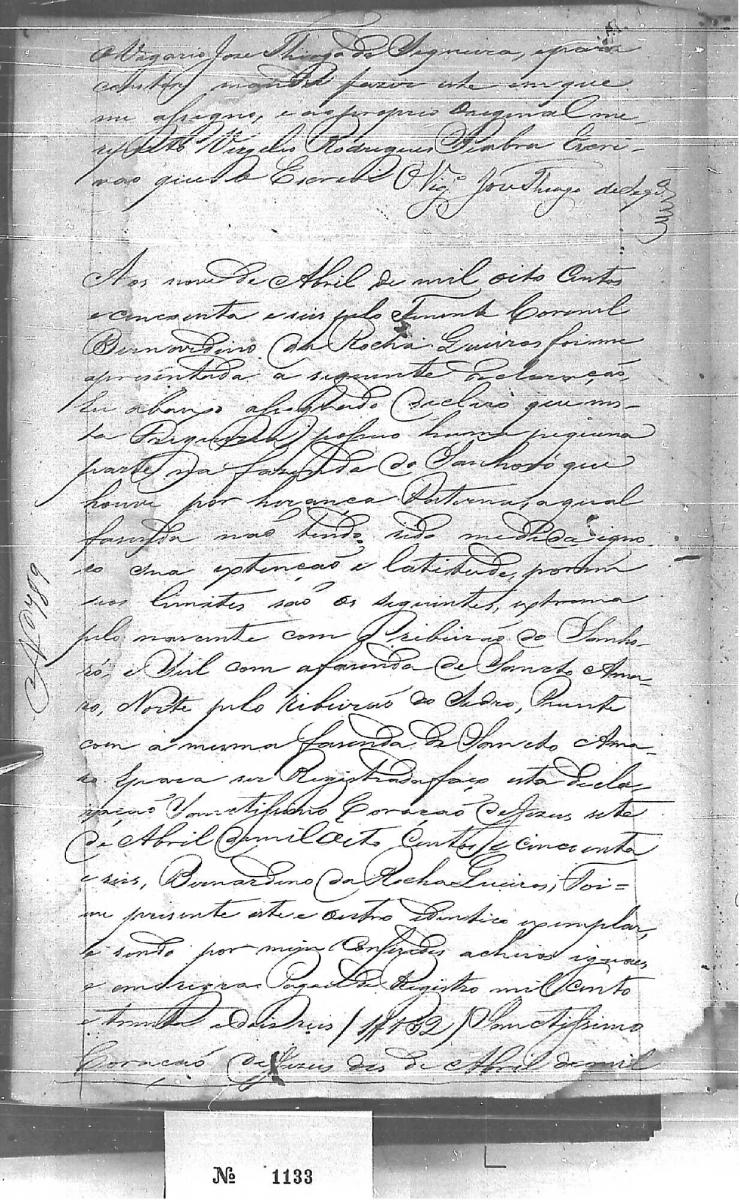 O Vigario Jose Thiago de Siqueira, e para
constar mandei fazer este em que
me assigno, e ao proprio Original me
reporto Virgelio Rodrigues Seabra Escri-
vao que o Escrevi O Vigº José Thiago de Seqrª
Aos nove de Abril de mil oito Centos
e cincoenta e seis pelo Tenente Coronel
Bernardino da Rocha Queiros foi me
apresentada a seguinte declaração,
Eu abaixo assignado declaro que nes-
ta Freguezia possuo huma piquena
parte na fazenda do Sanhoró que
houve por herança Paterna, a qual
fazenda nao tendo sido medida igno
ro sua extenção e latitude, porem
seos limites são os seguintes, extrema
pelo nascente com o Ribeirão do Sanho-
ró, e Sul com a fazenda de Sancto Ama-
ro, Norte pelo Ribeirão do Pedro, Puente
com a mesma fazenda de Sancto Ama-
ro Epara ser Registrada faço esta decla-
ração Sanctissimo Coração de Jezus sete
de Abril de mil Oito Centos e cincoenta
e seis, Bernardino da Rocha Queiros, Foi=
me presente este e outro identico exemplar,
e sendo por mim Conferidos achei os iguaes
Pagou de Registro mil cento
e trinta e dois reis (1#132) Sanctissimo
Coração de Jezus des de Abril de mil
Nº 789
Nº 1133